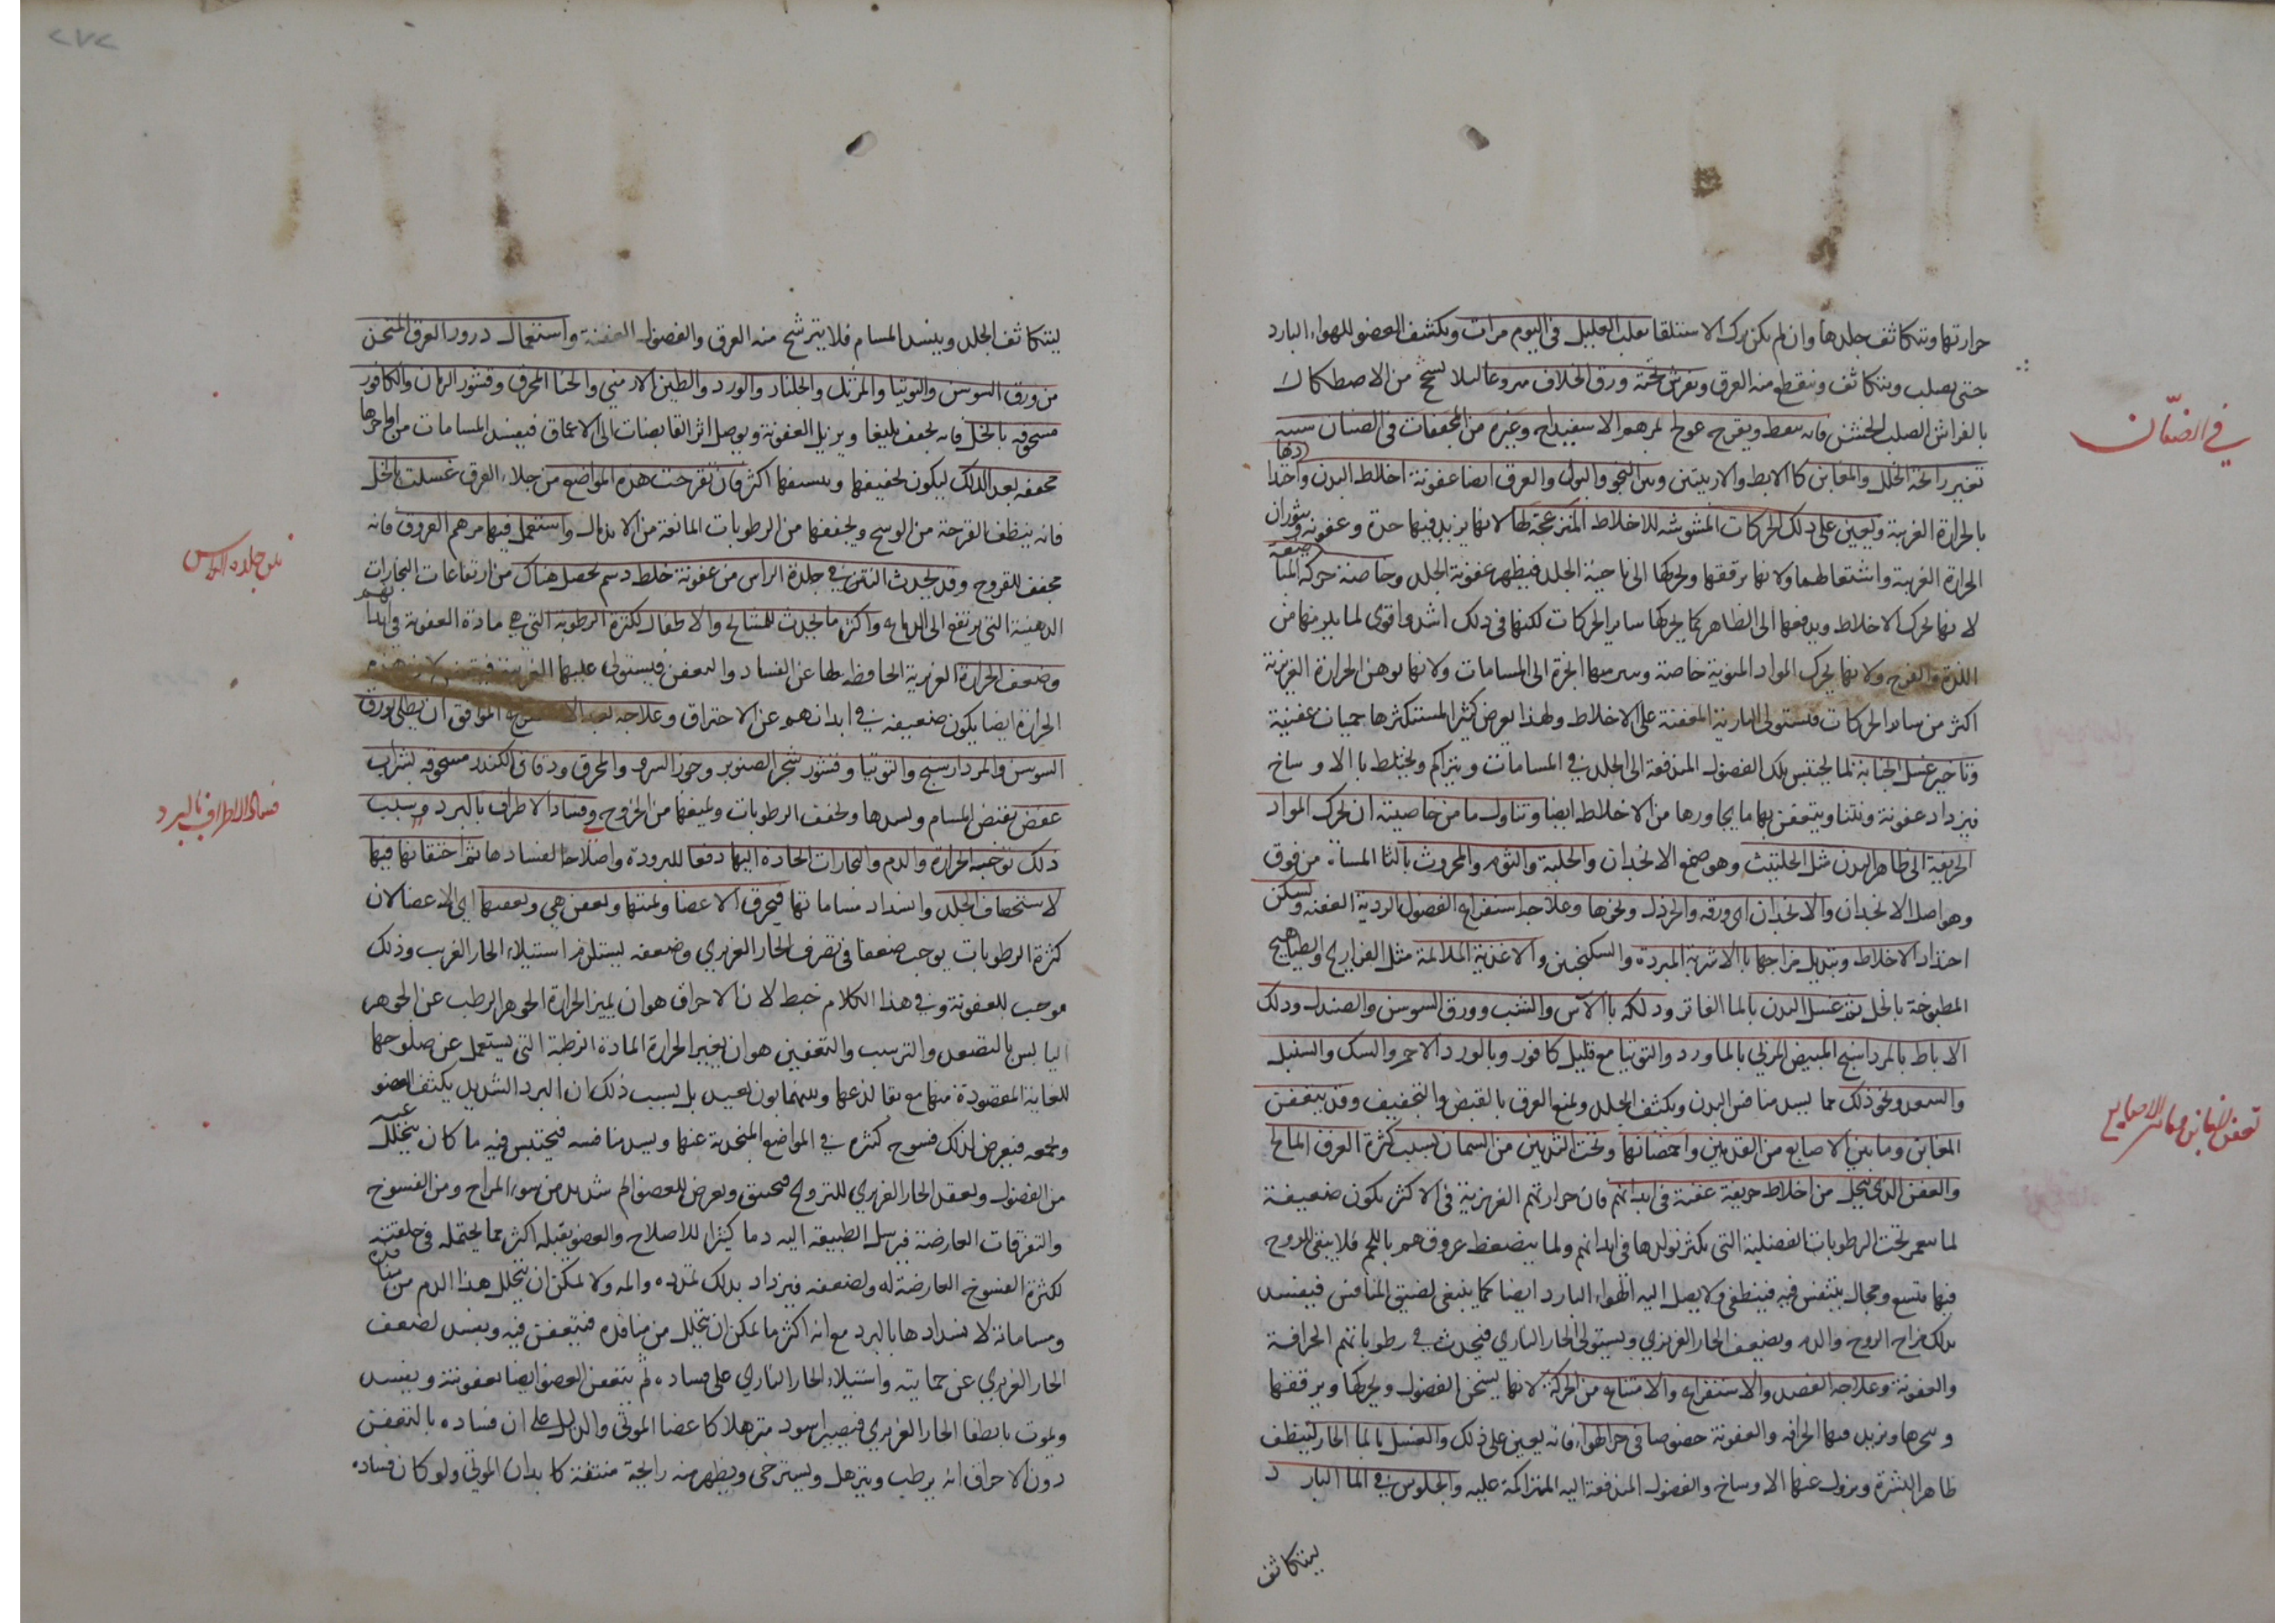 حرارتها ويتكاثف جلدها وان لم يكن ترك الاستلقا يقلب العليل في اليوم مرات ويكشف العضو للهواء البارد
حتى يصلب ويتكاثف وينقطع منه العرق ويفرش تحته ورق الخلاف منزوعا ليلا يسحج من الاصطكاك
بالفراش الصلب الخشن فانه يعط ويقرح عولج بمرهم الاسفيداج وغيره من المجففات في الصنان سببه
في الصنان
تغيير رائحة الجلد والمغابن كالابط والاربيتين وبين البخو والبول والعرق ايضا عفونة اخلاط البدن واحتدادها
بالحرارة الغريبة ويعين على ذلك الحركات المشوشه للاخلاط المزعجة لها لانها يزيد فيها حدة وعفونة وثوران
الحرارة الغريبة واشتعالها ولانها يرققها ويحركها الى ناحية الجلد فيظهر عفونة الجلد وخاصة حركة المباضعة
لانها تحرك الاخلاط ويدفعها الى الظاهر كما يحركها ساير الحركات لكنها في ذلك اشد واقوى لما يلزمها من
اللذة والفرح ولانها يحرك المواد المنوية خاصة الى المسامات ولانها توهن الحرارة الغريزية
اكثر من ساير الحركات فيستولى النارية المعفنة على الاخلاط ولهذا يعرض كثيرا لمستكثرها حميات عفنية
وتاخير غسل الجنابة لما يحتبس تلك الفضول المندفعة الى الجلد في المسامات ويتراكم ويختلط بالاوساخ
فيزداد عفونة ونتنا ويتعفن بها ما يجاورها من الاخلاط ايضا وتناول ما من خاصيته ان يحرك المواد
الحريفة الى ظاهر البدن مثل الحلتيت وهو صمغ الانجدان والحلبة والثوم والمحروث بالثا المثناة من فوق
وهو اصل الانجدان والانجدان اى ورقه والخردل ونحوها وعلاجه استفراغ الفضول الردية العفنه وتسكين
احتداد الاخلاط وتبديل مزاجها بالاشربة المبردة والسكنجبين والاغذية الملائمة مثل الفراريج والطياهيج
المطبوخة بالخل ثم غسل البدن بالما الفاتر ودلكه بالآس والشب وورق السوسن والصندل ودلك
الاباط بالمرداسنج المبيض المربي بالماورد والتوتيا مع قليل كافور وبالورد الاحمر والسك والسنبل
والسعد ونحو ذلك مما يسد منافس البدن ويكثف الجلد ويمنع العرق بالقبض والتجفيف وقد يتعفن
المغابن وما بين الاصابع من القدمين واخمصاتها وتحت الثديين من السمان بسبب كثرة العرق المالح
تعفن المغابن وما بين الاصابع
والعفن الذى يتحلل من اخلاط حريفة عفنة في ابدانهم فان حرارتهم الغريزية في الاكثر يكون ضعيفة
لما ينغمر تحت الرطوبات الفضلية التى يكثر تولدها في ابدانهم ولما ينضغط عروقهم باللحم فلا يبقى للروح
فيها متسع ومجال يتنفس فيه فينطفي ولا يصل اليه الهواء البارد ايضا كما ينبغي لضيق المنافس فيفسد
بذلك مزاج الروح والدم ويضعف الحار الغريزي ويستولى الحار الناري فيحدث في رطوباتهم الحرافة
والعفونة وعلاجه الفصد والاستفراغ والامتناع من الحركة لانها يسخن الفضول ويحركها ويرققها
ويبخرها ويزيد فيها الحرافه والعفونة خصوصا في حر الهواء فانه يعين على ذلك والغسل بالما الحار لتنظيف
ظاهر البشرة ويزول عنها الاوساخ والفضول المندفعة اليه المتراكمة عليه والجلوس في الما البارد
ليتكاثف
ليتكاثف الجلد وينسد المسام فلا يترشح منه العرق والفضول العفنة واستعمال ذرور العرق المتخذ
من ورق السوسن والتوتيا والمرتك والجلنار والورد والطين الارمني والحنا المحرق وقشور الرمان والكافور
مسحوقه بالخل فانه يجفف بليغا ويزيل العفونة ويوصل اثر القابضات الى الاعماق فيفسد المسامات من اواخرها
مجففه بعد الدلك ليكون تجفيفها وينشفها اكثر فان تقرحت هذه المواضع من جلاء العرق غسلت بالخل
فانه ينظف القرحة من الوسخ ويجففها من الرطوبات المانعة من الاندمال واستعمل فيها مرهم العروق فانه
مجفف للقروح وقد يحدث النتن في جلدة الراس من عفونة خلط دسم يحصل هناك من ارتفاعات البخارات
نتن جلدة الراس
الدهنية التى يرتفع الى الدماغ واكثر ما يحدث للمشايخ والاطفال لكثرة الرطوبة التى هي مادة العفونة في ابدانهم
وضعف الحرارة الغريزية الحافظة لها عن الفساد والتعفن فيستولى عليها الغريبة
الحرارة ايضا يكون ضعيفه في ابدانهم عن الاحتراق وعلاجه بعد الموافق ان يطلى بورق
السوسن والمردارسنج والتوتيا وقشور شجر الصنوبر وجوز السرو والمحرق ودقاق الكندر مسحوقه بشراب
عفص يقبض المسام ويسدها ويجفف الرطوبات ويمنعها من الخروج وفساد الاطراف بالبرد وسبب
فساد الاطراف بالبرد
ذلك توجه الحرارة والدم والبخارات الحادة اليها دفعا للبرودة واصلاحا لفسادها ثم اختقانها فيها
لاستحصاف الجلد وانسداد مساماتها فيحرق الاعضا ويميتها ويعفن هي ويعفنها اي الاعضا لان
كثرة الرطوبات يوجب ضعفا في تصرف الحار الغريزي وضعفه يستلزم استيلاء الحار الغريب وذلك
موجب للعفونة وفي هذا الكلام خبط لان الاحراق هو ان يميز الحرارة الجوهر الرطب عن الجوهر
اليابس بالتصعيد والترسيب والتعفين هو ان يغير الحرارة المادة الرطبة التى يستعمل عن صلوحها
للغاية المقصودة منها مع بقا نوعها وبينهما بون بعيد بل سبب ذلك ان البرد الشديد يكثف العضو
ويجمعه فيعرض لذلك فسوخ كثيره في المواضع المنجذبة عنها ويسد منافسه فيحتبس فيه ما كان يتحلل عنه
من الفضول ويعقل الحار الغريزي للتروح فيختنق ويعرض للعضو الم شديد من سوء المزاج ومن الفسوخ
والتفرقات العارضة فيرسل الطبيعة اليه دما كثيرا للاصلاح والعضو يقبله اكثر مما يحتمله في خلقته
لكثرة الفسوخ العارضة له ولضعفه فيزداد بذلك تمدده والمه ولا يمكن ان يتحلل هذا الدم من منافذه
ومساماته لانسدادها بالبرد مع انه اكثر ما يمكن ان يتحلل من منافذه فيتعفن فيه ويفسد لضعف
الحار الغريزي عن حمايته واستيلاء الحار الناري على فساده ثم يتعفن العضو ايضا بعفونته ويفسد
ويموت بانطفا الحار الغريزي فيصير اسود مترهلا كاعضا الموتى والدليل على ان فساده بالتعفن
دون الاحراق انه يرطب ويترهل ويسترخى ويظهر منه رايحة منتنة كابدان الموتى ولو كان فساده